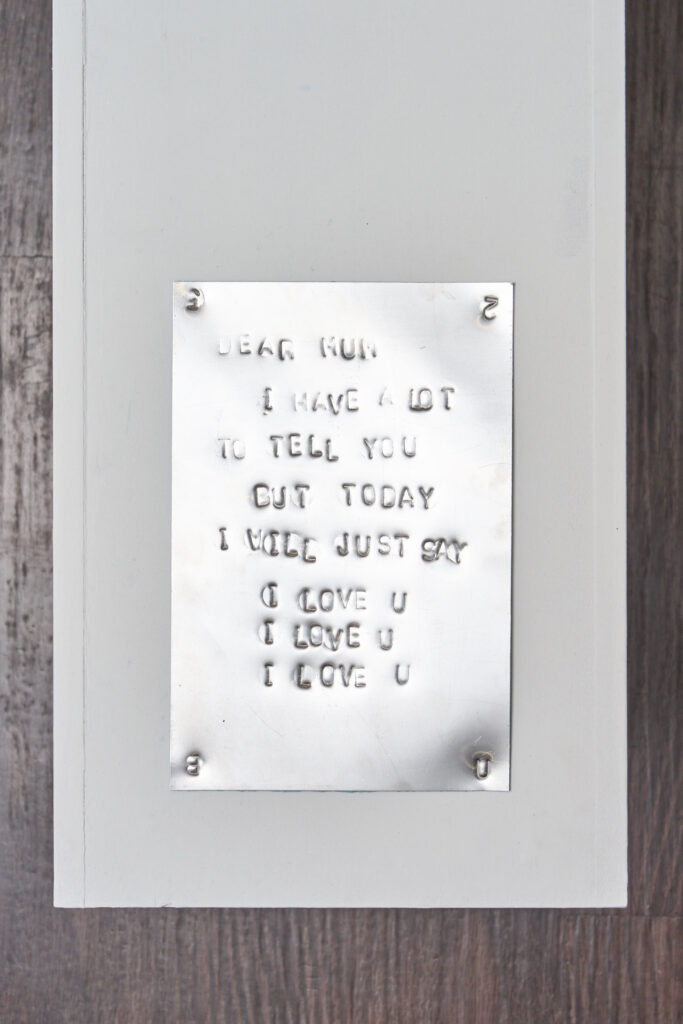 DEAR MUM
I HAVE A LOT
TO TELL YOU
BUT TODAY
I WILL JUST SAY
I LOVE U
I LOVE U
I LOVE U